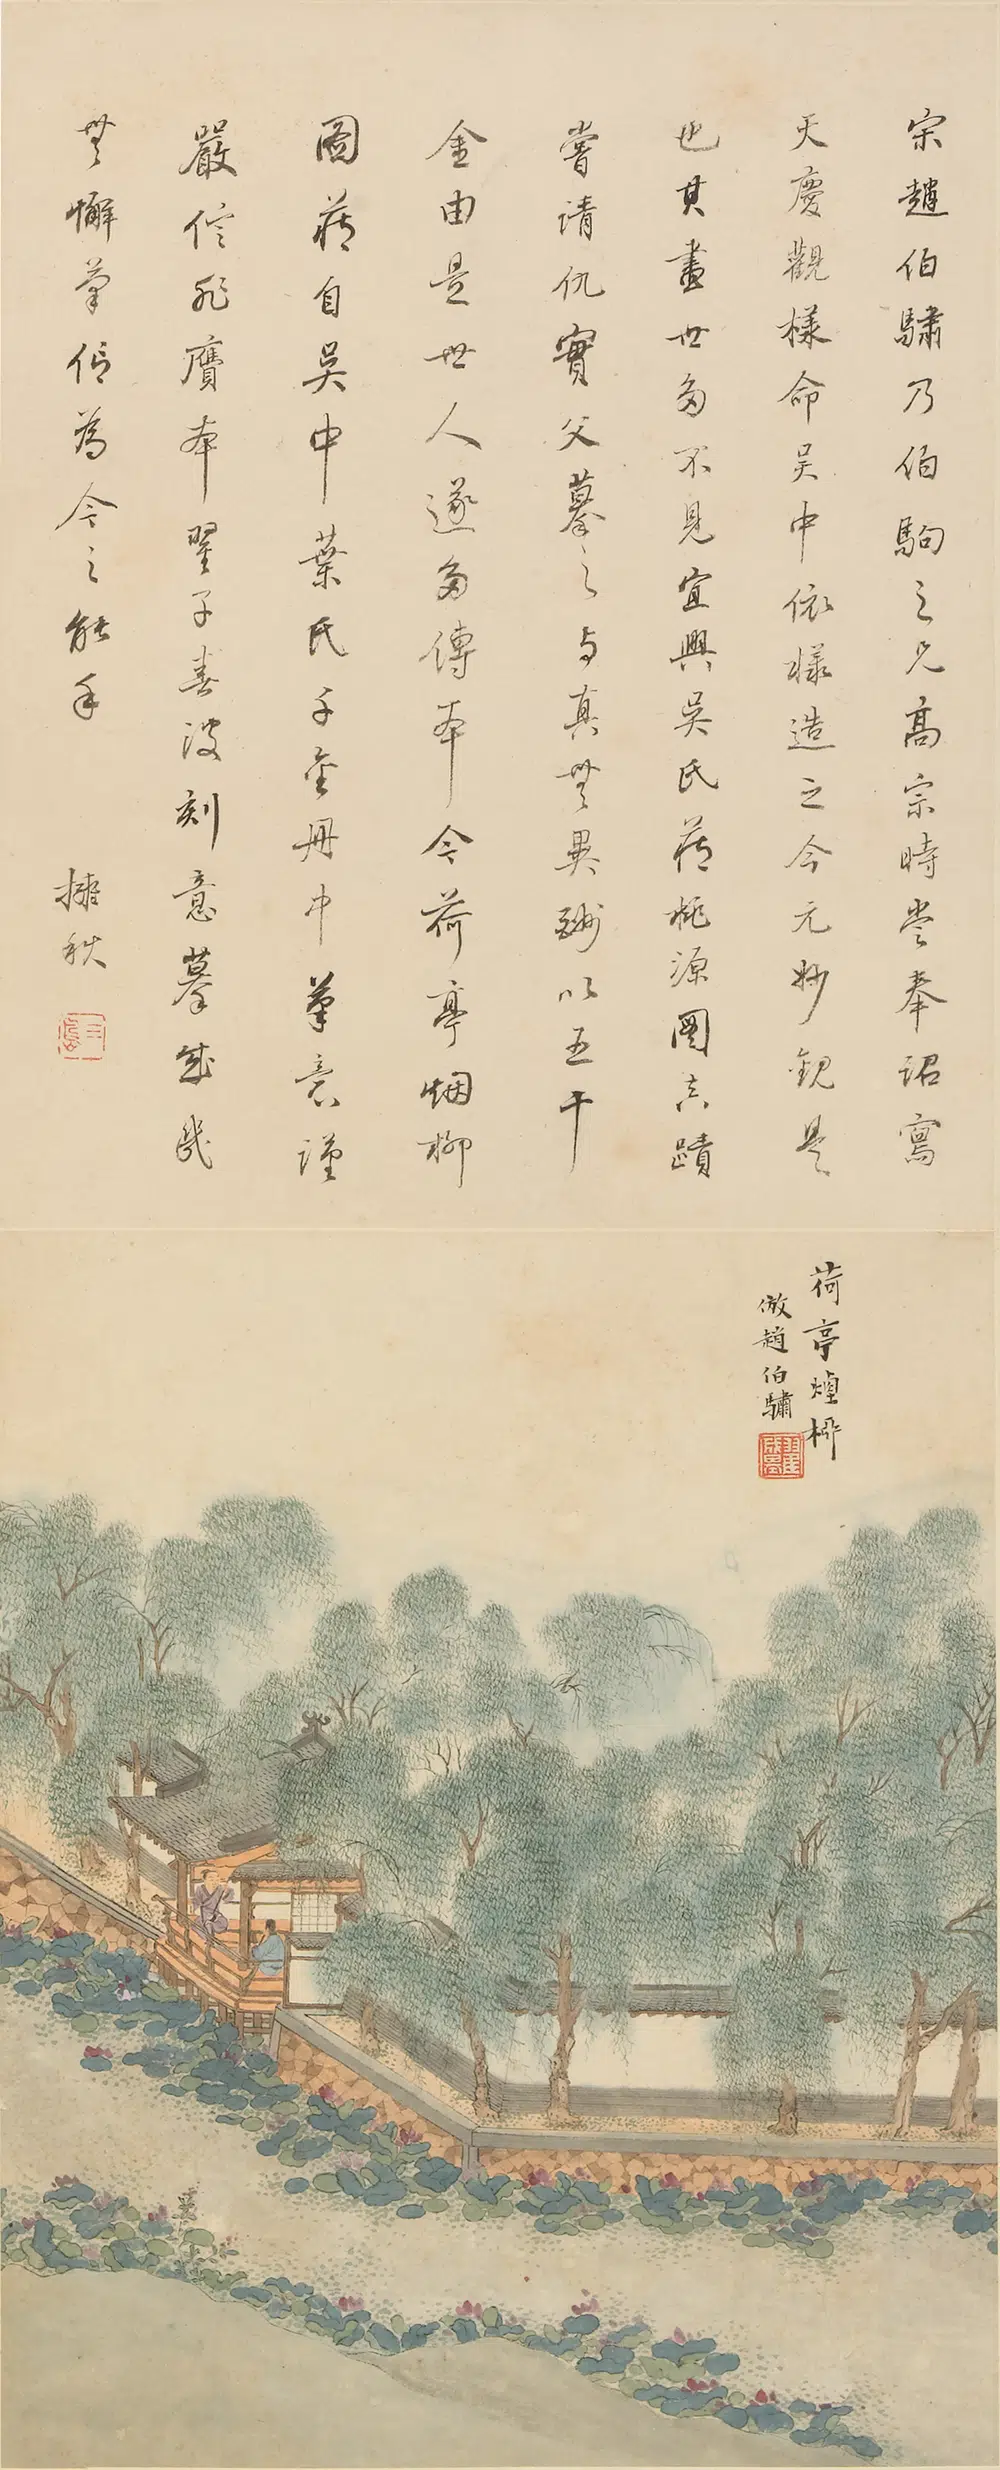 宋趙伯驌乃伯駒之兄高宗時嘗奉詔寫
天慶觀樣命吳中依樣造之今元妙觀是
也其畫世多不見宜興吳氏藏桃源圖真蹟
嘗請仇實父摹之与真無異酬以五十
金由是世人遂多傳本今荷亭烟柳
圖藏自吳中葉氏千金冊中筆意謹
嚴信非贋本翟子春波刻意摹成幾
無懈筆信為今之能手
擁秋
荷亭煙柳
倣趙伯驌